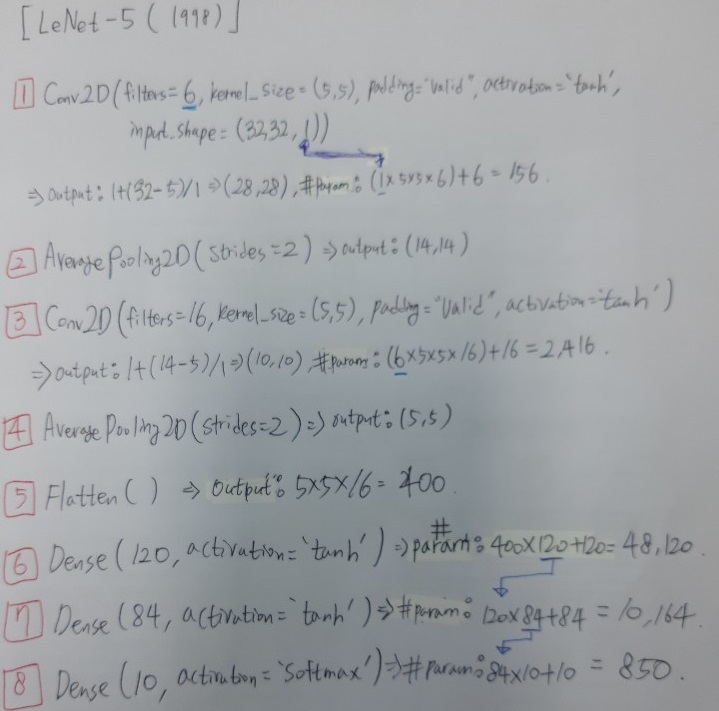 [LeNet-5 (1998)]
1 Conv2D(filters=6, kernel_size=(5,5), padding="valid", activation='tanh',
input_shape=(32,32,1))
⇒ output: 1+(32-5)/1 ⇒ (28,28), #param: (1×5×5×6)+6=156.
2 AveragePooling2D(strides=2) ⇒ output: (14,14)
3 Conv2D(filters=16, kernel_size=(5,5), padding="valid", activation='tanh')
⇒ output: 1+(14-5)/1 ⇒ (10,10) #param: (6×5×5×16)+16=2,416.
4 AveragePooling2D(strides=2) ⇒ output: (5,5)
5 Flatten( ) ⇒ output: 5×5×16=400.
6 Dense(120, activation='tanh') ⇒ #param: 400×120+120=48,120.
7 Dense(84, activation='tanh') ⇒ #param: 120×84+84=10,164.
8 Dense(10, activation='softmax') ⇒ #param: 84×10+10=850.